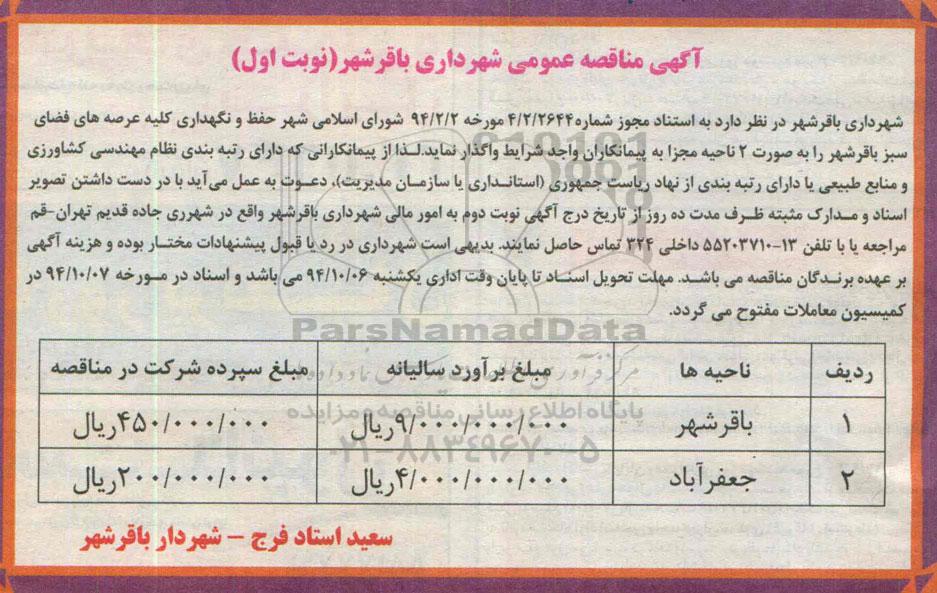 آگهی مناقصه عمومی شهرداری باقرشهر(نوبت اول)
شهرداری باقرشهر در نظر دارد به استناد مجوز شماره۴/۲/۲۶۴۴ مورخه ۹۴/۲/۲ شورای اسلامی شهر حفظ و نگهداری کلیه عرصه های فضای
سبز باقرشهر را به صورت ۲ ناحیه مجزا به پیمانکاران واجد شرایط واگذار نماید.لـذا از پیمانکارانی که دارای رتبه بندی نظام مهندسی کشاورزی
و منابع طبیعی یا دارای رتبه بندی از نهاد ریاست جمهوری (استانداری یا سازمان مدیریت)، دعوت به عمل می آید با در دست داشتن تصویر
اسناد و مدارک مثبته ظرف مدت ده روز از تاریخ درج آگهی نوبت دوم به امور مالی شهرداری باقرشهر واقع در شهرری جاده قدیم تهران-قم
مراجعه یا با تلفن ۱۳-۵۵۲۰۳۷۱۰ داخلی ۳۲۴ تماس حاصل نمایند. بدیهی است شهرداری در رد یا قبول پیشنهادات مختار بوده و هزینه آگهی
بر عهده برندگان مناقصه می باشد. مهلت تحویل اسناد تا پایان وقت اداری یکشنبه ۹۴/۱۰/۰۶ می باشد و اسناد در مورخه ۹۴/۱۰/۰۷ در
کمیسیون معاملات مفتوح می گردد.
ParsNamadData
ردیف ناحیه ها مبلغ برآورد سالیانه مبلغ سپرده شرکت در مناقصه
پایگاه اطلاع رسانی مناقصه و مزایده
۱ باقرشهر ۹/۰۰۰/۰۰۰/۰۰۰ریال ۴۵۰/۰۰۰/۰۰۰ریال
۰۲۱-۸۸۳۴۹۶۷۰-۵
۲ جعفرآباد ۴/۰۰۰/۰۰۰/۰۰۰ریال ۲۰۰/۰۰۰/۰۰۰ریال
سعید استاد فرج – شهردار باقرشهر